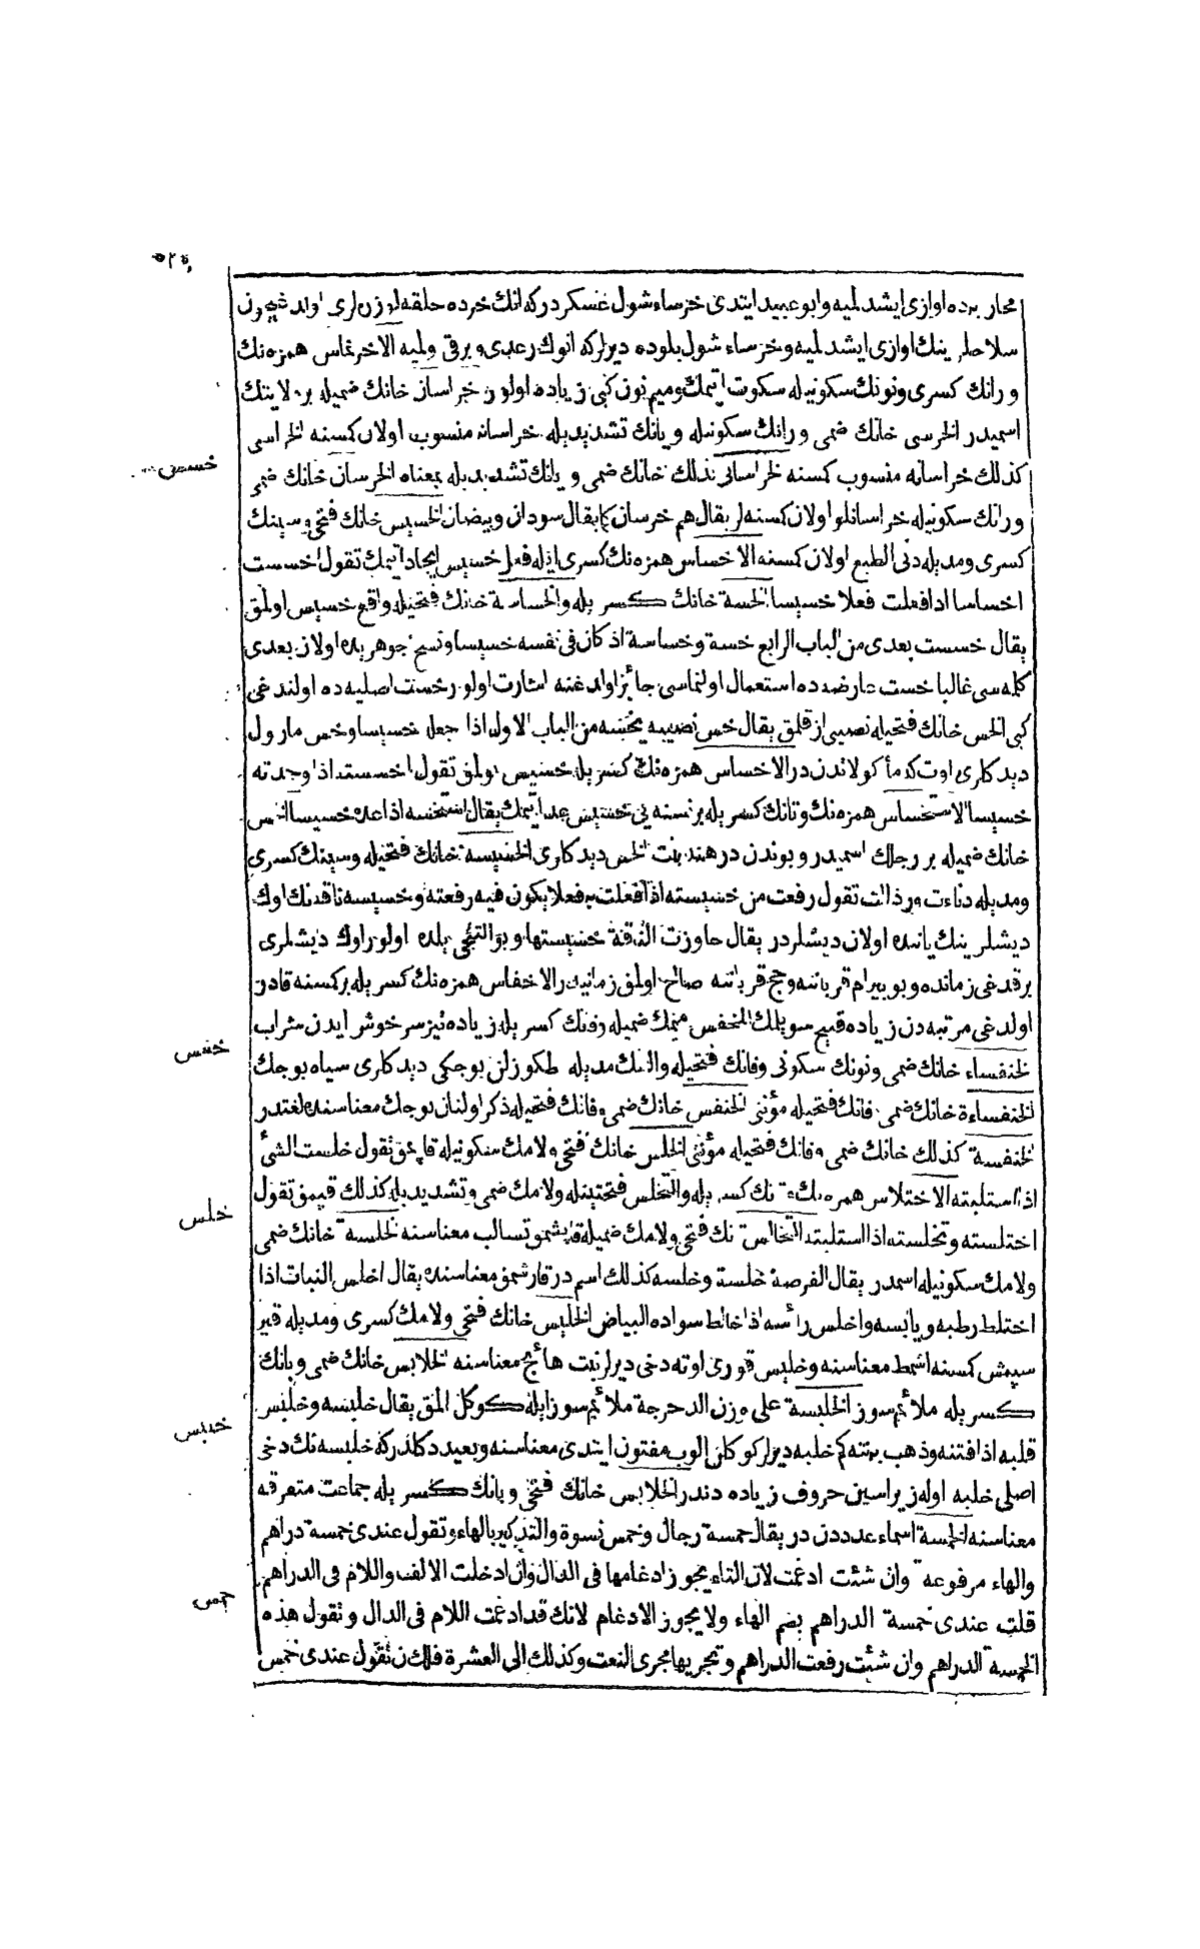 ٥٢٥
محاربه ده اوازى ايشدلميه وابو عبيد ايتدى خرساء شول عسكردركه انك خرده حلقه لو زره لرى اولدغيچون
سلاحلرينك اوازى ايشدلميه وخرساء شول بلوده ديرلركه انوك رعدى وبرقى ولميه الاخرنماس همزه نك
ورانك كسرى ونونك سكونيله سكوت ايتمك وميم نون كبى زياده اولور خراسان خانك ضميله بر ولاينك
اسميدر الخرسى خانك ضمى ورانك سكونيله ويانك تشديديله خراسانه منسوب اولان كمسنه الخراسى
كذلك خراسانه منسوب كمسنه الخراسانى كذلك خانك ضمى ويانك تشديديله بمعناه الخرسان خانك ضمى
ورانك سكونيله خراسانلو اولان كمسنه لر يقال هم خرسان كما يقال سودان وبيضان الخسيس خانك فتحى وسينك
كسرى ومديله دنى الطبع اولان كمسنه الاخساس همزه نك كسرى ايله فعل خسيس ايجاد ايتمك تقول اخسست
اخساسا اذا فعلت فعلا خسيسا الخسة خانك كسر يله والخساسة خانك فتحيله واقع خسيس اولمق
يقال خسست بعدى من الباب الرابع خسة وخساسة اذ كان فى نفسه خسيسا ونسخ جوهريده اولان بعدى
كلمه سى غالبا خست عارضه ده استعمال اولنماسى جائز اولدغنه اشارت اولور خست اصليه ده اولندغى
كبى الخس خانك فتحيله نصيبى ازقلمق يقال خس نصيبه يخسه من الباب الاول اذا جعل خسيسا وخس مارول
ديدكلرى اوت كه مأكولاتدندر الاخساس همزه نك كسريله خسيس بولمق تقول اخسسته اذا وجدته
خسيسا الاستخساس همزه نك وتانك كسريله بر نسنه يى خسيس عد ايتمك يقال استخسه اذا عده خسيسا الخس
خانك ضميله بر رجلك اسميدر وبوندندر هند بنت الخس ديدكلرى الخسيسة خانك فتحيله وسينك كسرى
ومديله دناءت ورذالت تقول رفعت من خسيسته اذا فعلت به فعلا يكون فيه رفعته وخسيسه ناقه نك اوك
ديشلرينك ياننده اولان ديشلردر يقال جاوزت الناقة خسيستها وبو التنجى يلده اولور اوك ديشلرى
برقدغى زمانده وبو بيرام قربانه وحج قربانه صالح اولمق زمانيدر الاخفاس همزه نك كسريله بر كمسنه قادر
اولدغى مرتبه دن زياده قبيح سويلمك المخفس ميمك ضميله وفنك كسريله زياده تيز سرخوش ايدن شراب
الخنفساء خانك ضمى ونونك سكونى وفانك فتحيله والفك مديله طكوزلن بوجكى ديدكلرى سياه بوجك
الخنفساءة خانك ضمى وفانك فتحيله مؤنثى الخنفس خانك ضمى وفانك فتحيله ذكر اولنان بوجك معناسنده لغتدر
الخنفسة كذلك خانك ضمى وفانك فتحيله مؤنثى الخلس خانك فتحى ولامك سكونيله قاپمق تقول خلست الشئ
اذا استلبته الاختلاس همزه نك وتانك كسريله والتخلس فتحتينله ولامك ضمى وتشديديله كذلك قپمق تقول
اختلسته وتخلسته اذا استلبته التخالس تانك فتحى ولامك ضميله قپشمق تسالب معناسنه الخلسة خانك ضمى
ولامك سكونيله اسمدر يقال الفرصة خلسة وخلسه كذلك اسمدر قارشمق معناسنده يقال اخلس النبات اذا
اختلط رطبه ويابسه واخلس رأسه اذا خالط سواده البياض الخليس خانك فتحى ولامك كسرى ومديله قير
سيمش كمسنه اشمط معناسنه وخليس قورى اوته دخى ديرلر نبت هائج معناسنه الخلابس خانك ضمى وبانك
كسريله ملائم سوز الخلبسة على وزن الدحرجة ملائم سوز ايله كوكل المق يقال خلبسه وخلبس
قلبه اذا فتنه وذهب به نته كم خلبه ديرلر كوكلن الوب مفتون ايتدى معناسنه وبعيد دكلدركه خلبسه نك دخى
اصلى خلبه اوله زيرا سين حروف زياده دندر الخلابس خانك فتحى وبانك كسريله جماعت متفرقه
معناسنه الخمسة اسماء عدددن در يقال خمسة رجال وخمس نسوة والتذكير بالهاء وتقول عندى خمسة دراهم
والهاء مرفوعة وان شئت ادغمت لان التاء يجوز ادغامها فى الدال وان ادخلت الالف واللام فى الدراهم
قلت عندى خمسة الدراهم بضم الهاء ولا يجوز الادغام لانك قد ادغمت اللام فى الدال وتقول هذه
الخمسة الدراهم وان شئت رفعت الدراهم وتجريها مجرى النعت وكذلك الى العشرة فلك ان تقول عندى خمس
خسس
خنفس
خلس
خلبس
خمس